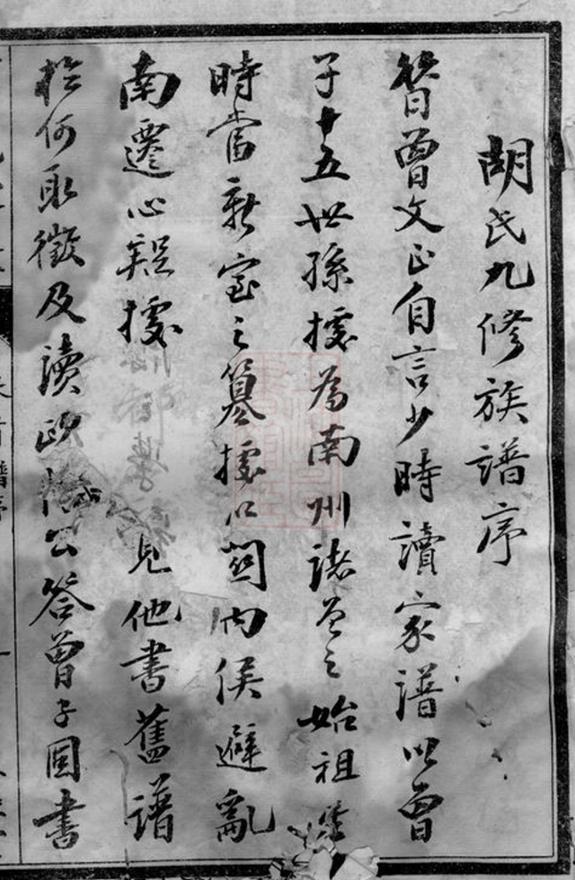 胡氏九修族譜序
昔曾文正自言少時讀家譜以曾
子十五世孫據為南州諸曾之始祖
時當新室之篡據以關內侯避亂
南遷心疑據 見他書舊譜
於何取徵及讀歐陽公答曾子固書